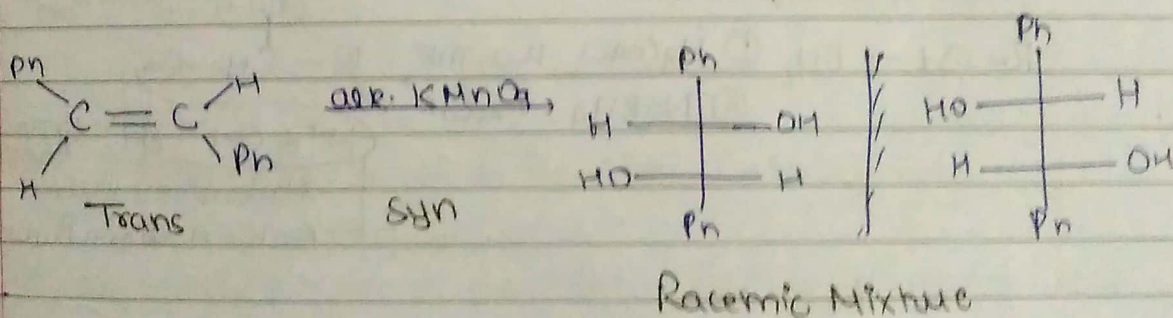 Ph H
C = C
H Ph
Trans
alk. KMnO4
Syn
Ph
H OH
HO H
Ph
Ph
HO H
H OH
Ph
Racemic Mixture